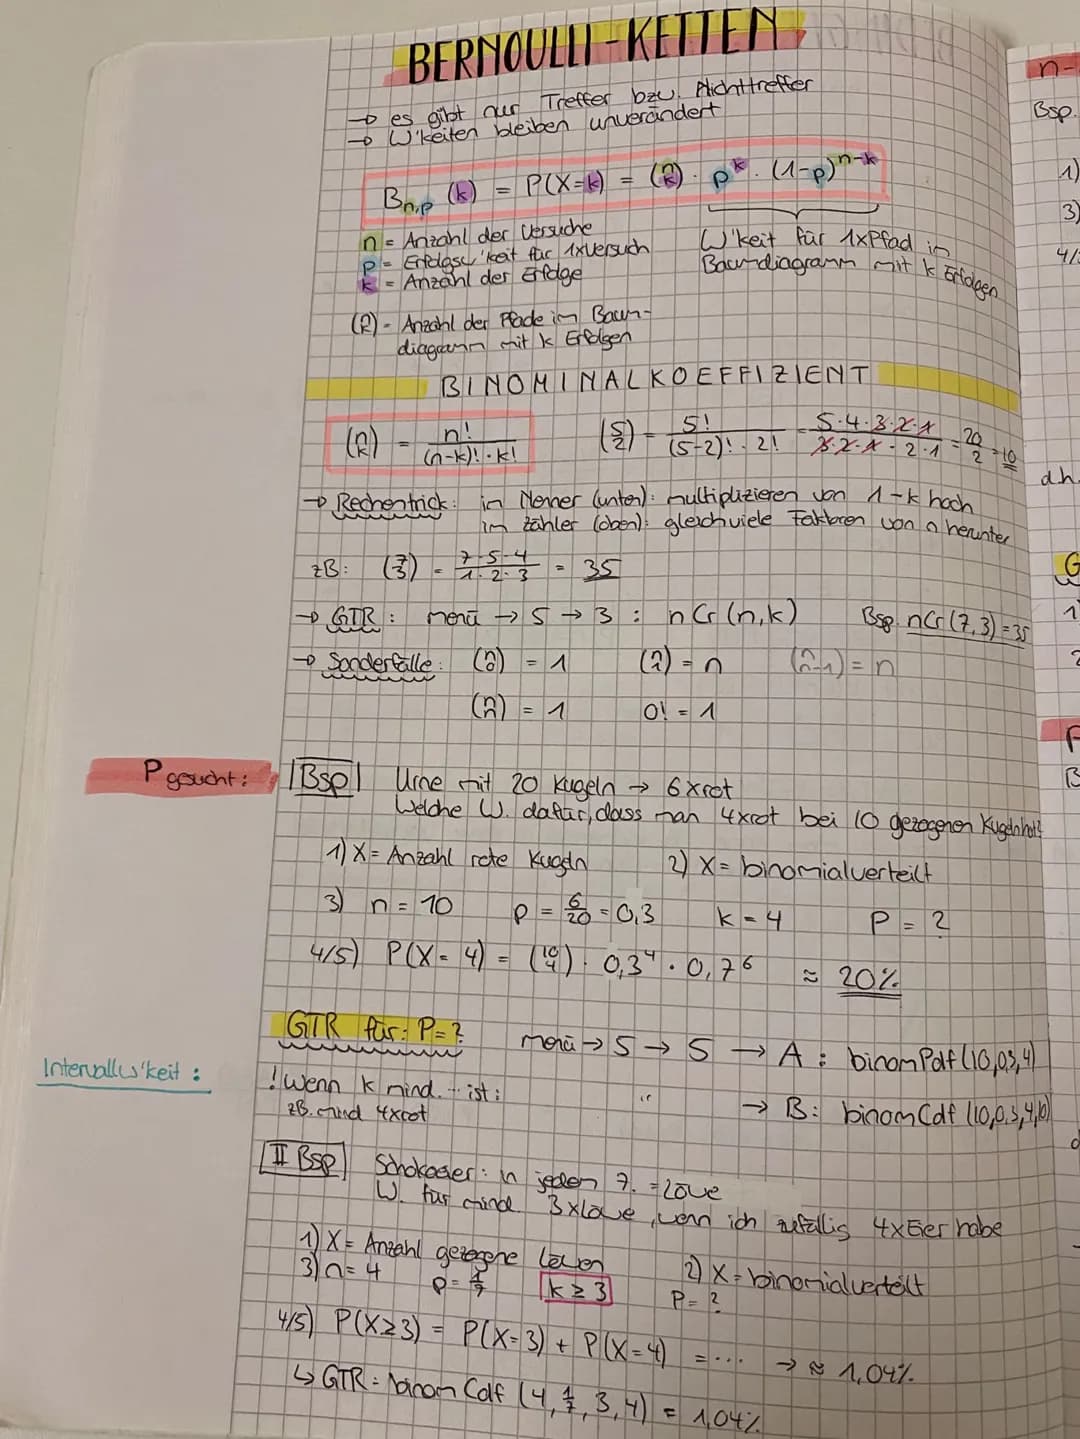 BERNOULLI-KETTEN
→ es gibt nur Treffer bzw. Nichttreffer
→ W'keiten bleiben unverändert
B n,p (k) = P(X=k) = (n k) · p^k · (1-p)^n-k
n = Anzahl der Versuche
p = Erfolgsw'keit für 1xVersuch
k = Anzahl der Erfolge
W'keit für 1xPfad in
Baumdiagramm mit k Erfolgen
(n k) - Anzahl der Pfade im Baum-
diagramm mit k Erfolgen
BINOMINALKOEFFIZIENT
(n k) = n! / (n-k)! · k!
(5 2) = 5! / (5-2)! · 2! = 5·4·3·2·1 / 3·2·1·2·1 = 20/2 = 10
→ Rechentrick: im Nenner (unten): multiplizieren von 1-k hoch
im Zähler (oben): gleichviele Faktoren von n herunter
zB: (7 3) = 7·5·4 / 1·2·3 = 35
→ GTR: menü → 5 → 3 : nCr(n,k) Bsp. nCr(7,3)=35
→ Sonderfälle: (n 0) = 1 (n 1) = n (n n-1) = n
(n n) = 1 0! = 1
P gesucht:
I Bsp Urne mit 20 Kugeln → 6xrot
Welche W. dafür, dass man 4xrot bei 10 gezogenen Kugeln hat?
1) X = Anzahl rote Kugeln 2) X = binomialverteilt
3) n = 10 p = 6/20 = 0,3 k = 4 P = ?
4/5) P(X = 4) = (10 4) · 0,3^4 · 0,7^6 ≈ 20%
GTR für: P=? menü → 5 → 5 → A : binomPdf(10,0.3,4)
Intervallw'keit :
! Wenn k mind. ... ist: " → B: binomCdf(10,0.3,4,10)
zB. mind 4xrot
II Bsp Schokoeier: in jedem 7. = Löwe
W. für mind. 3xLöwe, wenn ich zufällig 4xEier habe
1) X = Anzahl gezogene Löwen 2) X = binomialverteilt
3) n = 4 p = 1/7 k ≥ 3 P = ?
4/5) P(X≥3) = P(X=3) + P(X=4) = ... → ≈ 1,04%
↳ GTR: binom Cdf (4, 1/7, 3, 4) = 1,04%
n-
Bsp.
1)
3)
4/
dh.
G
1
2
F
B